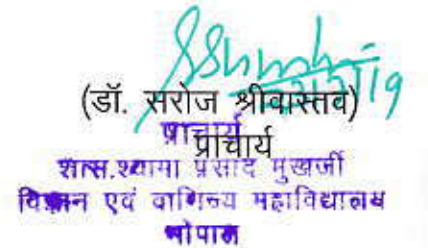 (डॉ. सरोज श्रीवास्तव)
प्राचार्य
प्राचार्य
शास.श्यामा प्रसाद मुखर्जी
विज्ञान एवं वाणिज्य महाविद्यालय
भोपाल